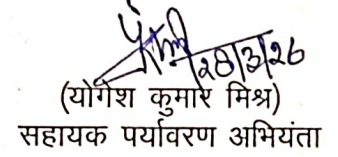 28/3/26
(योगेश कुमार मिश्र)
सहायक पर्यावरण अभियंता